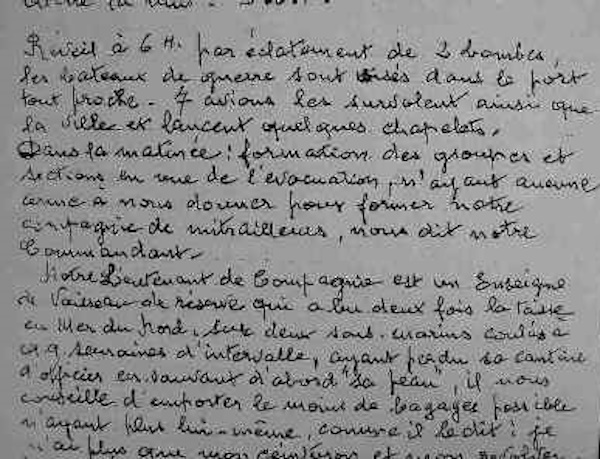 Réveil à 6 H. par éclatement de 2 bombes,
les bateaux de guerre sont visés dans le port
tout proche - 7 avions les survolent ainsi que
la ville et lancent quelques chapelets.
Dans la matinée : formation des groupes et
sections en vue de l'évacuation, n'ayant aucune
arme à nous donner pour former notre
compagnie de mitrailleurs, nous dit notre
Commandant.
Notre Lieutenant de Compagnie est un Enseigne
de Vaisseau de réserve qui a bu deux fois la tasse
en Mer du Nord, sur deux sous-marins coulés à
semaines d'intervalle, ayant perdu sa cantine
d'officier en sauvant d'abord "sa peau", il nous
conseille d'emporter le moins de bagages possible
n'ayant plus lui-même, comme il le dit : je
n'ai plus que mon ceinturon et mon revolver